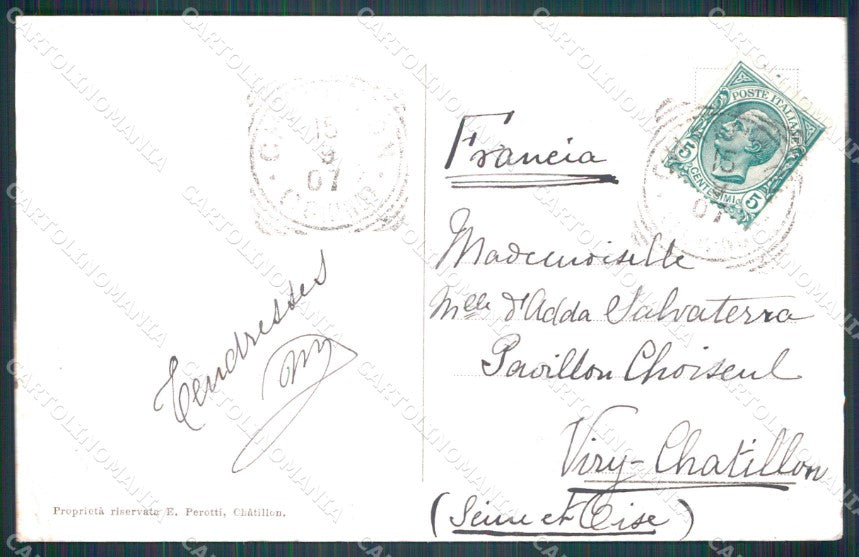 Francia
Mademoiselle
Mlle d'Adda Salvaterra
Pavillon Choiseul
Viry-Chatillon
(Seine et Oise)
Tendresses
Proprietà riservata E. Perotti, Châtillon.
POSTE ITALIANE
5 CENTESIMI 5
15
9
07
15
9
07
CARTOLINOMANIA